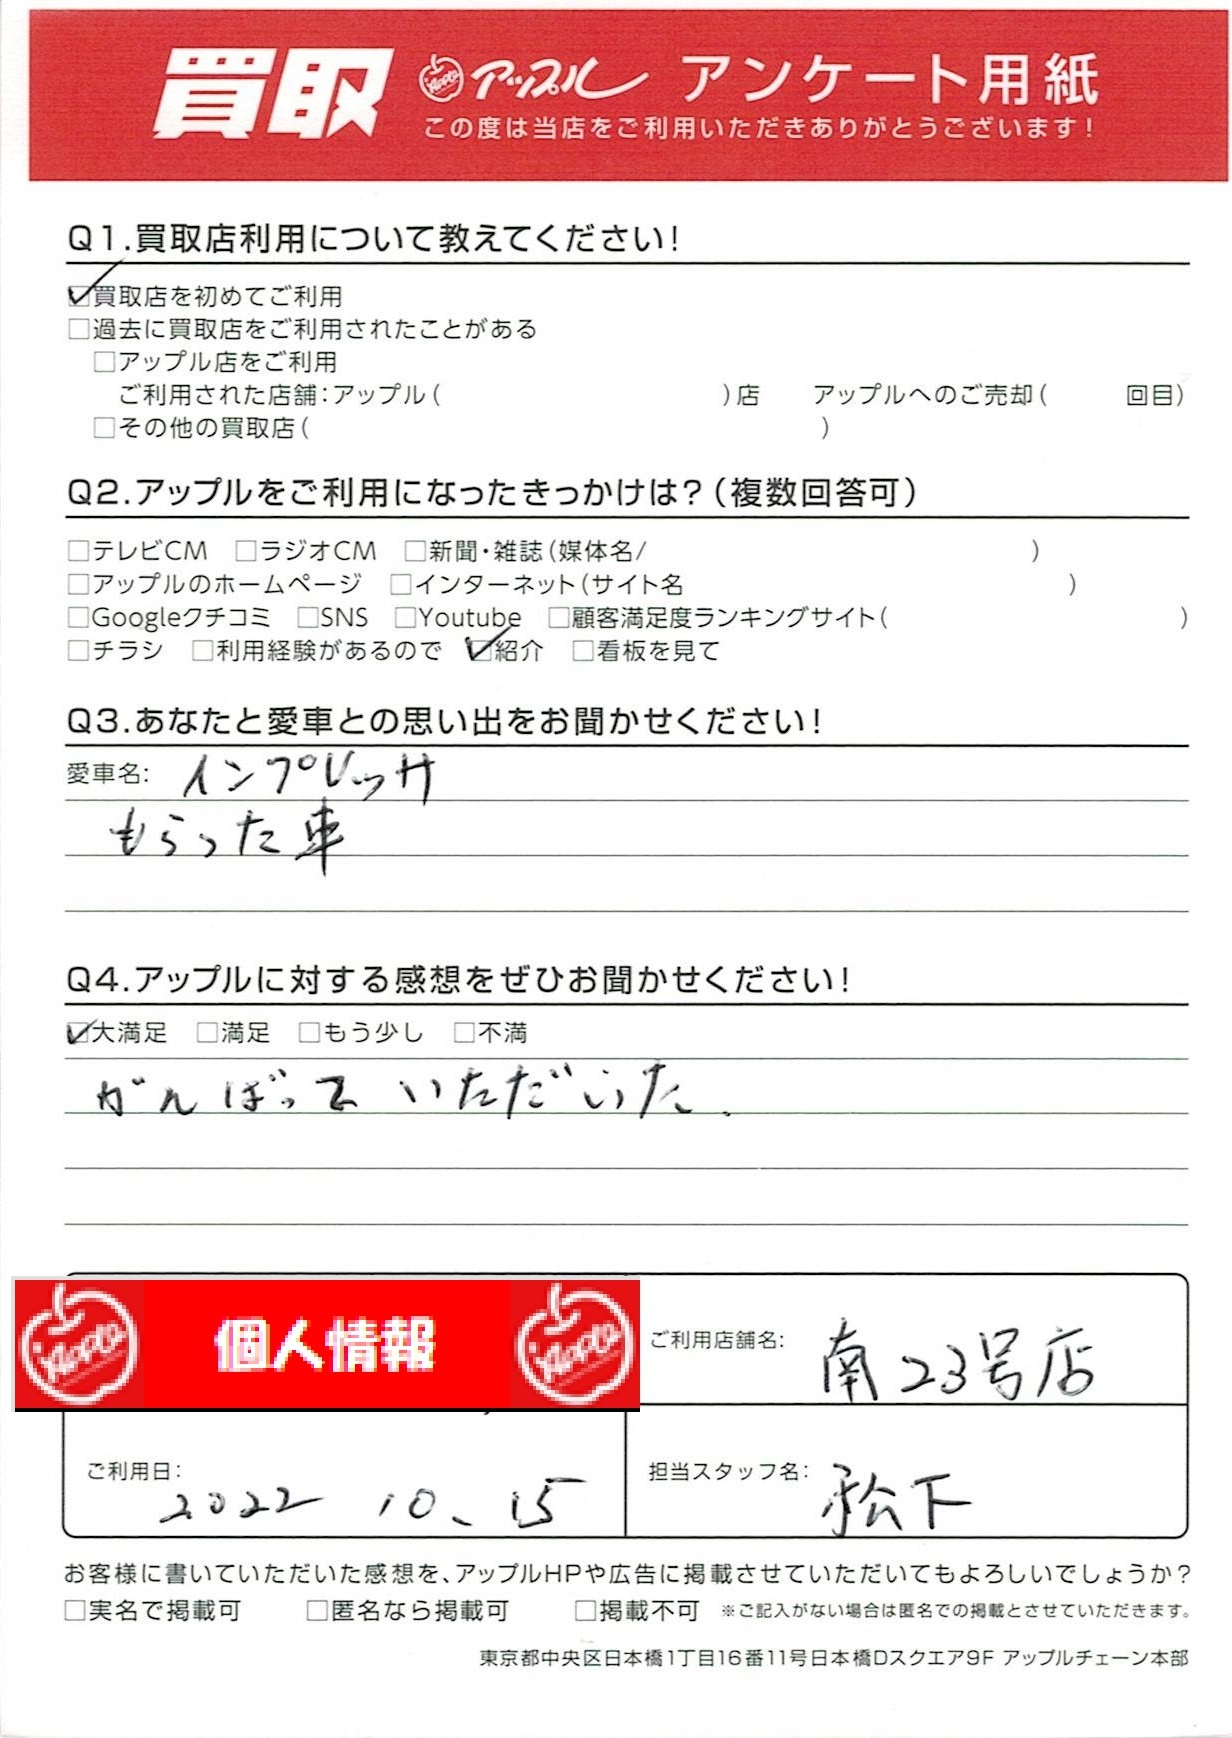 買取 アップル アンケート用紙
この度は当店をご利用いただきありがとうございます!
Q1.買取店利用について教えてください!
☑買取店を初めてご利用
□過去に買取店をご利用されたことがある
□アップル店をご利用
ご利用された店舗:アップル( )店 アップルへのご売却( 回目)
□その他の買取店( )
Q2.アップルをご利用になったきっかけは?(複数回答可)
□テレビCM □ラジオCM □新聞・雑誌(媒体名/ )
□アップルのホームページ □インターネット(サイト名 )
□Googleクチコミ □SNS □Youtube □顧客満足度ランキングサイト( )
□チラシ □利用経験があるので ☑紹介 □看板を見て
Q3.あなたと愛車との思い出をお聞かせください!
愛車名: インプレッサ
もらった車
Q4.アップルに対する感想をぜひお聞かせください!
☑大満足 □満足 □もう少し □不満
がんばっていただいた.
Apple 個人情報 Apple
ご利用店舗名: 南23号店
ご利用日: 2022 10、15
担当スタッフ名: 松下
お客様に書いていただいた感想を、アップルHPや広告に掲載させていただいてもよろしいでしょうか?
□実名で掲載可 □匿名なら掲載可 □掲載不可 ※ご記入がない場合は匿名での掲載とさせていただきます。
東京都中央区日本橋1丁目16番11号日本橋Dスクエア9F アップルチェーン本部